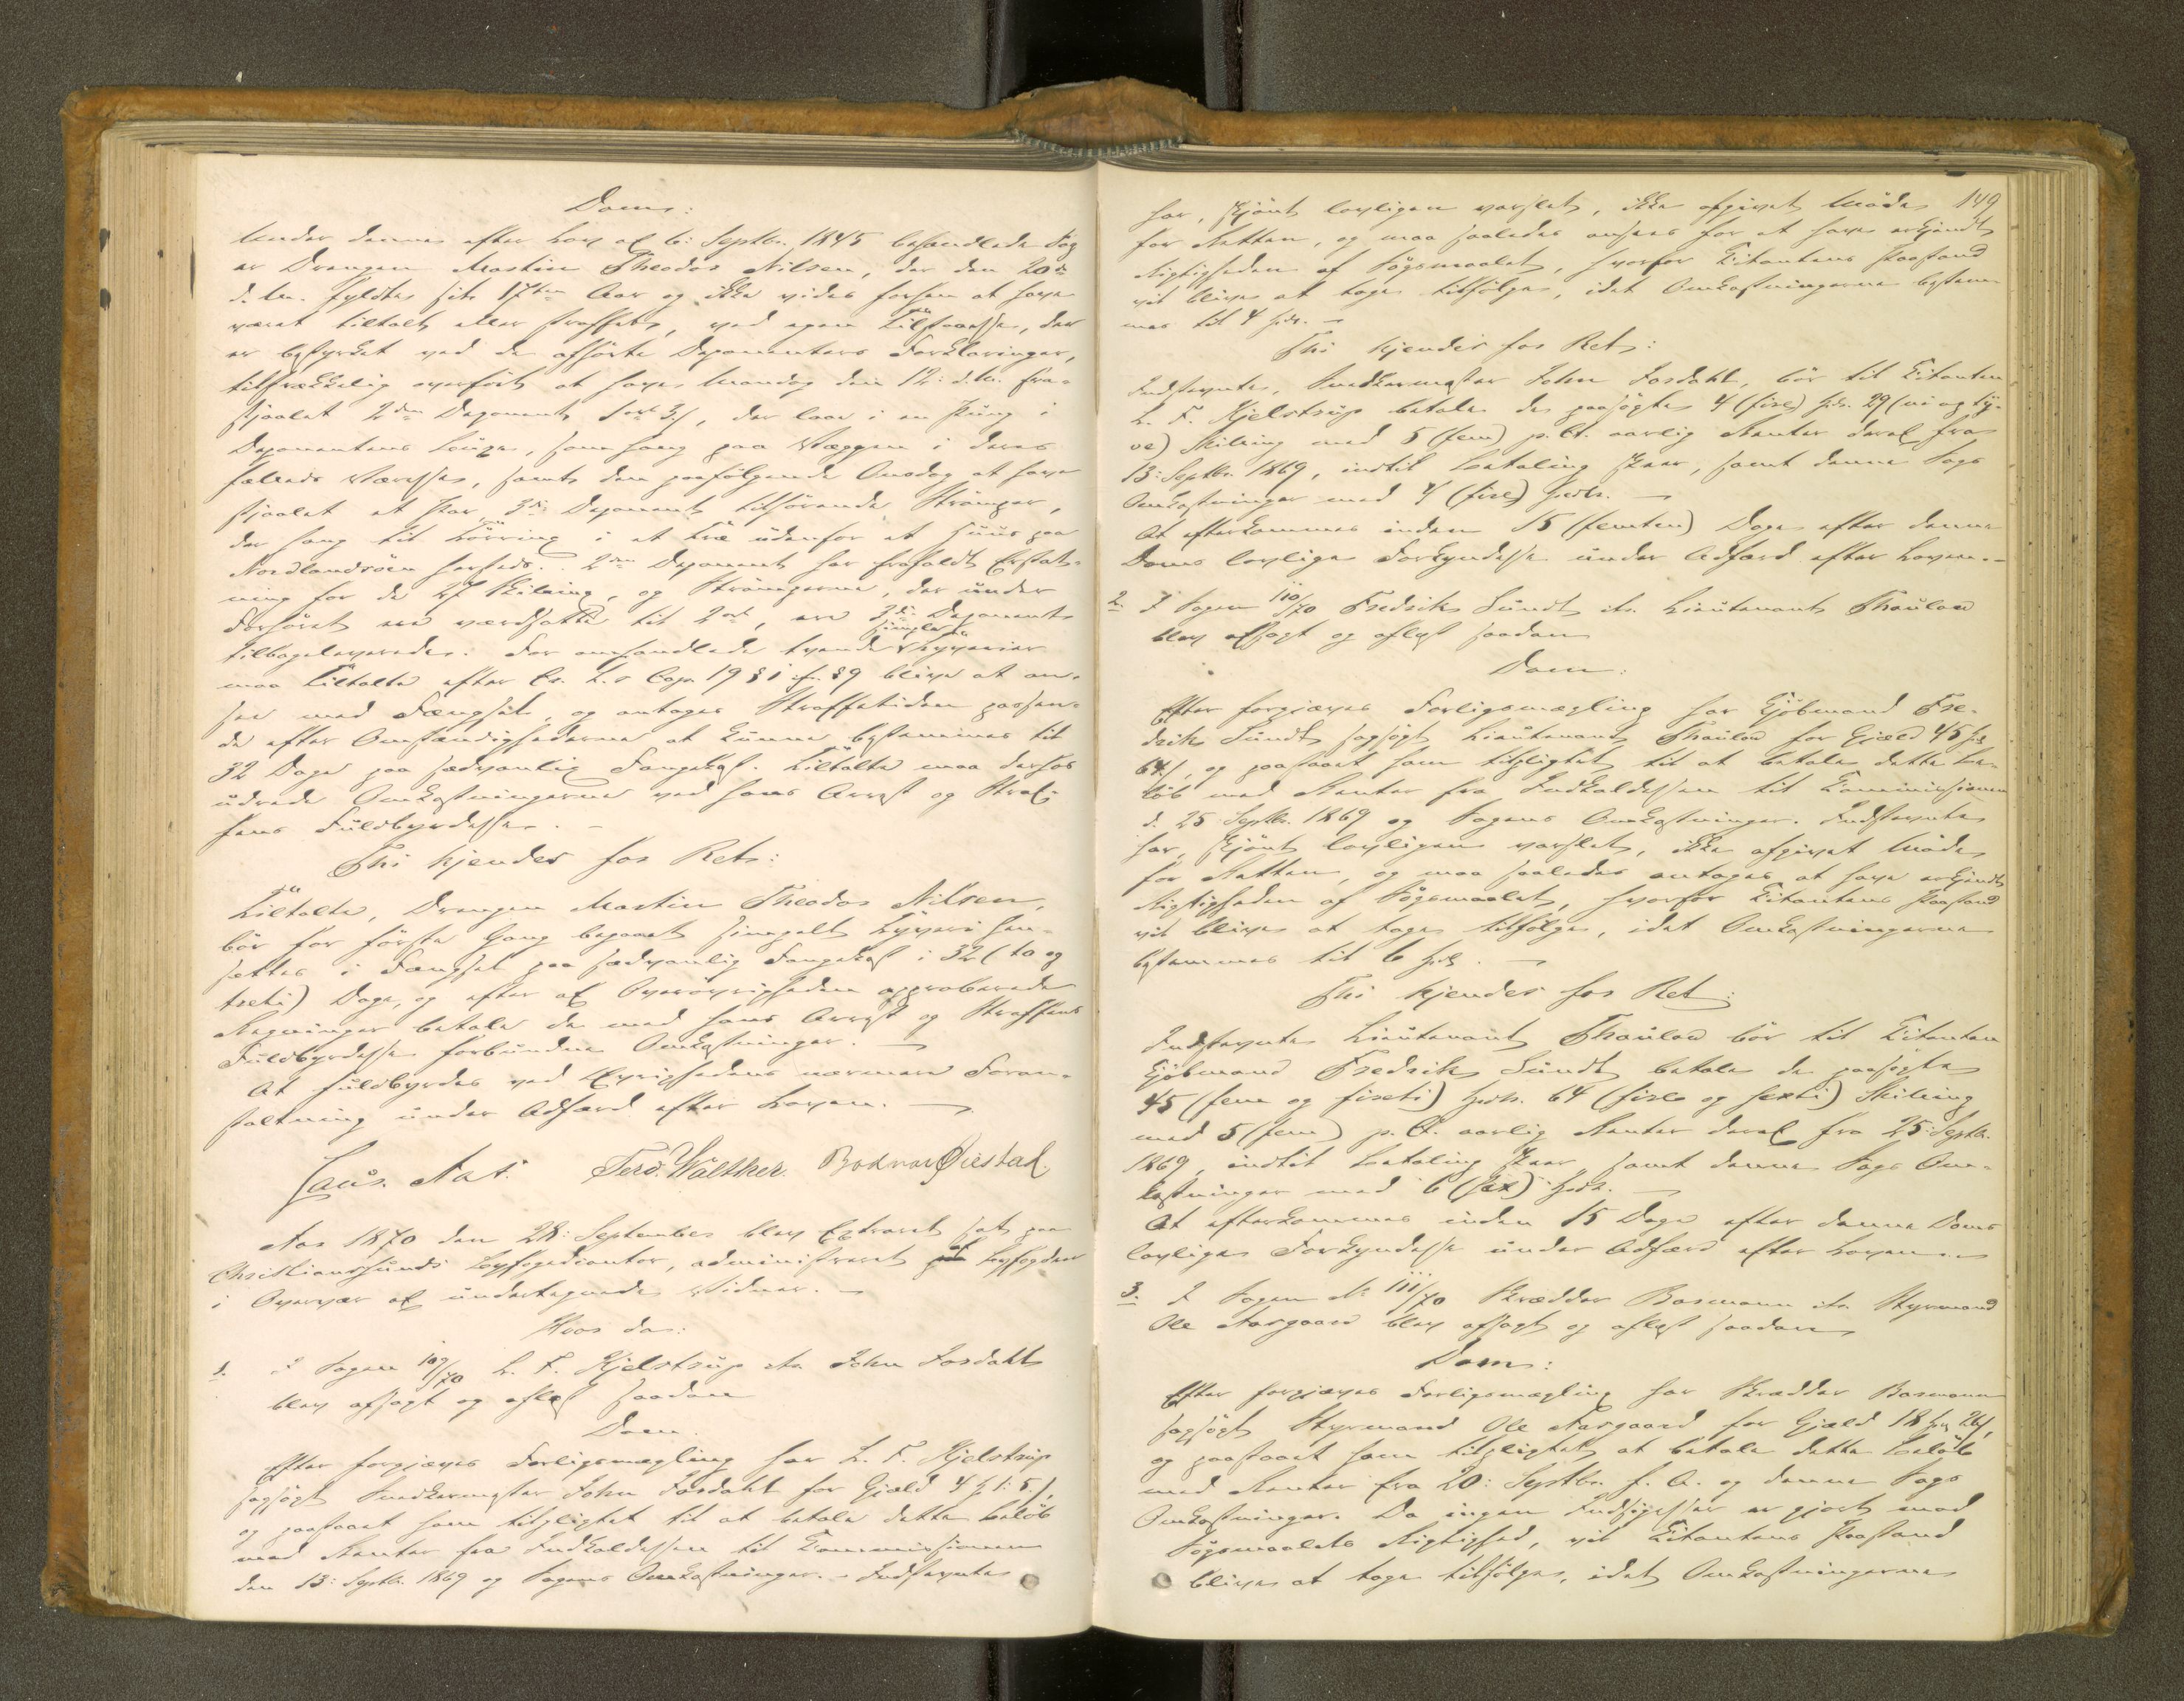 Dom:
Under denne efter Lov af 6: Septbr. 1845 behandlede Sag
er Drengen Martin Theodor Nilsen, der den 20de
d. M. fyldte sit 17de Aar og ikke vides forhen at have
været tiltalt eller straffet, ved egen Tilstaaelse, der
er bestyrket ved de afhørte Deponenters Forklaringer,
tilstrækkelig overført at have Mandag den 12: d. M. fra-
stjaalet 2den Deponent 1 ort 3 s, der laae i en Pung i
Deponentens Buxe, som hang paa Væggen i deres
fælleds Værelse, samt den paafølgende Onsdag at have
stjaalet et Par 3die Deponent tilhørende Strømper,
der hang til Tørring i et Træ udenfor et Huus paa
Nordlandsøen herfeds. 2den Deponent har frafaldt Erstat-
ning for de 27 Skilling, og Strømperne, der under
Forhøret ere værdsatte til 2 ort, ere 3die Deponent
tilbageleverede. For omhandlede tvende simple Tyverier
maa Tiltalte efter Cr. L.s Cap. 19 § 1 cfr. § 9 blive at an-
see med Fængsel, og antages Straffetiden passen-
de efter Omstændighederne at kunne bestemmes til
32 Dage paa sædvanlig Fangekost. Tiltalte maa derhos
udrede Omkostningerne ved hans Arrest og Straf-
fens Fuldbyrdelse. –
Thi kjendes for Ret:
Tiltalte, Drengen Martin Theodor Nilsen,
bør for første Gang begaaet simpelt Tyveri hen-
sættes i Fængsel paa sædvanlig Fangekost i 32 (to og
treti) Dage, og efter af Overøvrigheden approberede
Regninger betale de med hans Arrest og Straffens
Fuldbyrdelse forbundne Omkostninger. –
At fuldbyrdes ved Øvrighedens nærmere Foran-
staltning under Adfærd efter Loven. –
Ferd. Walther. Bodvar Øiestad.
Aar 1870 den 28: September blev Extraret sat paa
Christianssunds Byfogedcontor, administreret af Byfogden
i Overvær af undertegnede Vidner. –
Hvor da:
1. I Sagen 109/70 L. F. Kjelstrup ctr. John Jordahl
blev afsagt og aflæst saadan
Dom.
Efter forgjæves Forligsmægling har L. F. Kjelstrup
sagsøgt Snedkermester John Jordahl for Gjæld 4 Spd 1: 5 s,
og paastaaet ham tilpligtet til at betale dette Beløb
med Renter fra Indkaldelsen til Kommissionen
den 13: Septbr. 1869 og Sagens Omkostninger. – Indstævnte
149
har, skjønt lovligen varslet, ikke afgivet Møde
for Retten, og maa saaledes ansees for at have erkjendt
Rigtigheden af Søgsmaalet, hvorfor Citantens Paastand
vil blive at tage tilfølge, idet Omkostningerne bestem-
mes til 4 Spd. –
Thi kjendes for Ret:
Indstævnte, Snedkermester John Jordahl, bør til Citanten
L. F. Kjelstrup betale de paasøgte 4 (fire) Spd. 29 (ni og ty-
ve) Skilling med 5 (fem) p. Ct. aarlig Renter deraf fra
13: Septbr. 1869, indtil Betaling skeer, samt denne Sags
Omkostninger med 4 (fire) Spdlr. –
At efterkommes inden 15 (femten) Dage efter denne
Doms lovlige Forkyndelse under Adfærd efter Loven. –
2. I Sagen 110/70 Fredrik Sundt ctr. Lieutenant Thaulow
blev afsagt og aflæst saadan
Dom:
Efter forgjæves Forligsmægling har Kjøbmand Fre-
drik Sundt sagsøgt Lieutenant Thaulow for Gjæld 45 Spd
64 s, og paastaaet ham tilpligtet til at betale dette Be-
løb med Renter fra Indkaldelsen til Kommissionen
d. 25 Septbr. 1869 og Sagens Omkostninger. Indstævnte
har, skjønt lovligen varslet, ikke afgivet Møde
for Retten, og maa saaledes antages at have erkjendt
Rigtigheden af Søgsmaalet, hvorfor Citantens Paastand
vil blive at tage tilfølge, idet Omkostningerne
bestemmes til 6 Spd. –
Thi kjendes for Ret:
Indstævnte Lieutenant Thaulow bør til Citanten
Kjøbmand Fredrik Sundt betale de paasøgte
45 (fem og fireti) Spdlr. 64 (fire og sexti) Skilling
med 5 (fem) p. Ct. aarlig Renter deraf fra 25: Septbr.
1869, indtil Betaling skeer, samt denne Sags Om-
kostninger med 6 (sex) Spdlr. –
At efterkommes inden 15 Dage efter denne Doms
lovlige Forkyndelse under Adfærd efter Loven. –
3. I Sagen No 111/70 Skrædder Basmann ctr. Styrmand
Ole Aasgaard blev afsagt og aflæst saadan
Dom:
Efter forgjæves Forligsmægling har Skrædder Basmann
sagsøgt Styrmand Ole Aasgaard for Gjæld 18 Spd 26 s,
og paastaaet ham tilpligtet at betale dette Beløb
med Renter fra 20: Septbr. f. A. og denne Sags
Omkostninger. Da ingen Indsigelse er gjort mod
Søgsmaalets Rigtighed, vil Citantens Paastand
blive at tage tilfølge, idet Omkostningerne